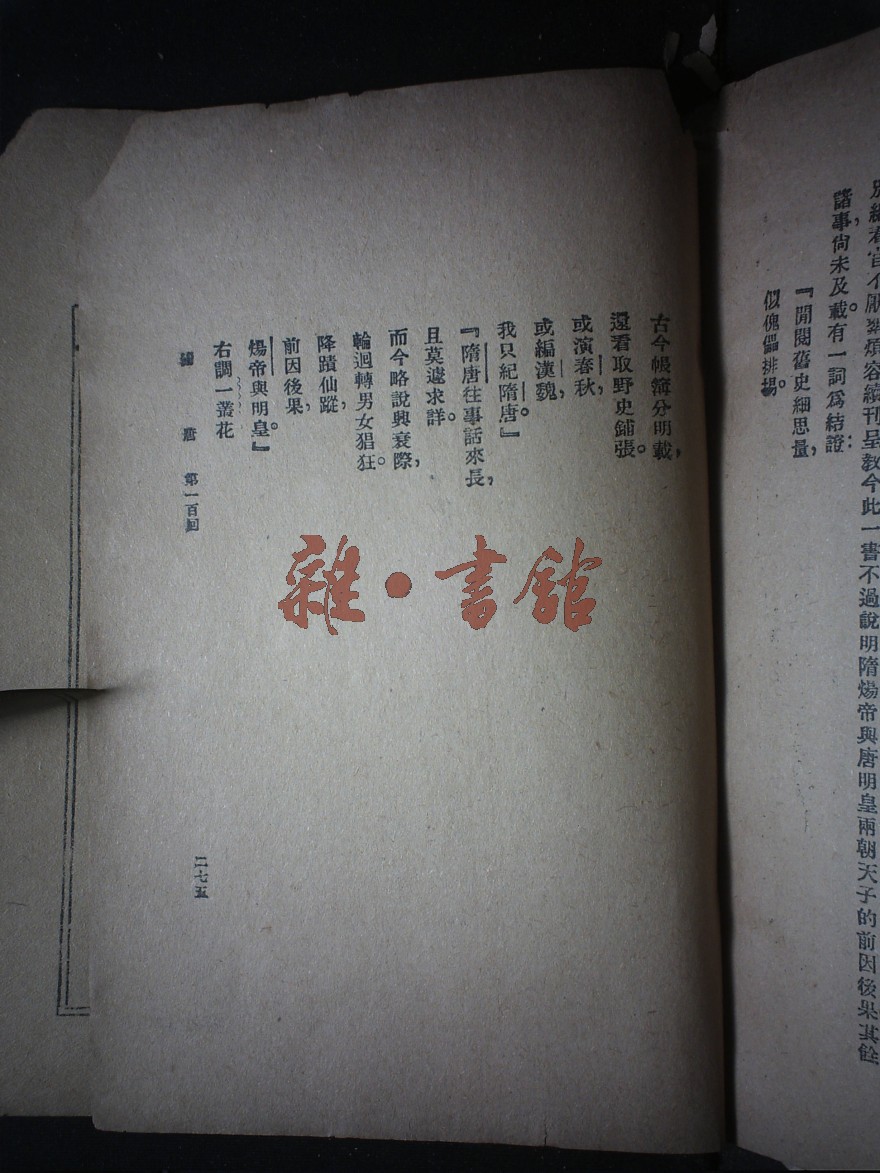 不厭絮煩容續刊呈教今此一書不過說明隋煬帝與唐明皇兩朝天子的前因後果其餘
諸事尙未及載有一詞爲結證：
『閒閱舊史細思量，
似傀儡排場。
古今帳簿分明載，
還看取野史鋪張。
或演春秋，
或編漢魏，
我只紀隋唐。』
『隋唐往事話來長，
且莫遽求詳。
而今略說興衰際，
輪迴轉男女猖狂。
降蹟仙蹤，
前因後果，
煬帝與明皇。』
右調一叢花
唐 第一百回
二七五
雜·書館